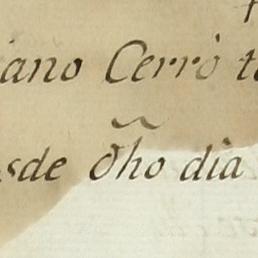 iano Cerrò t
sde d̃ho dia